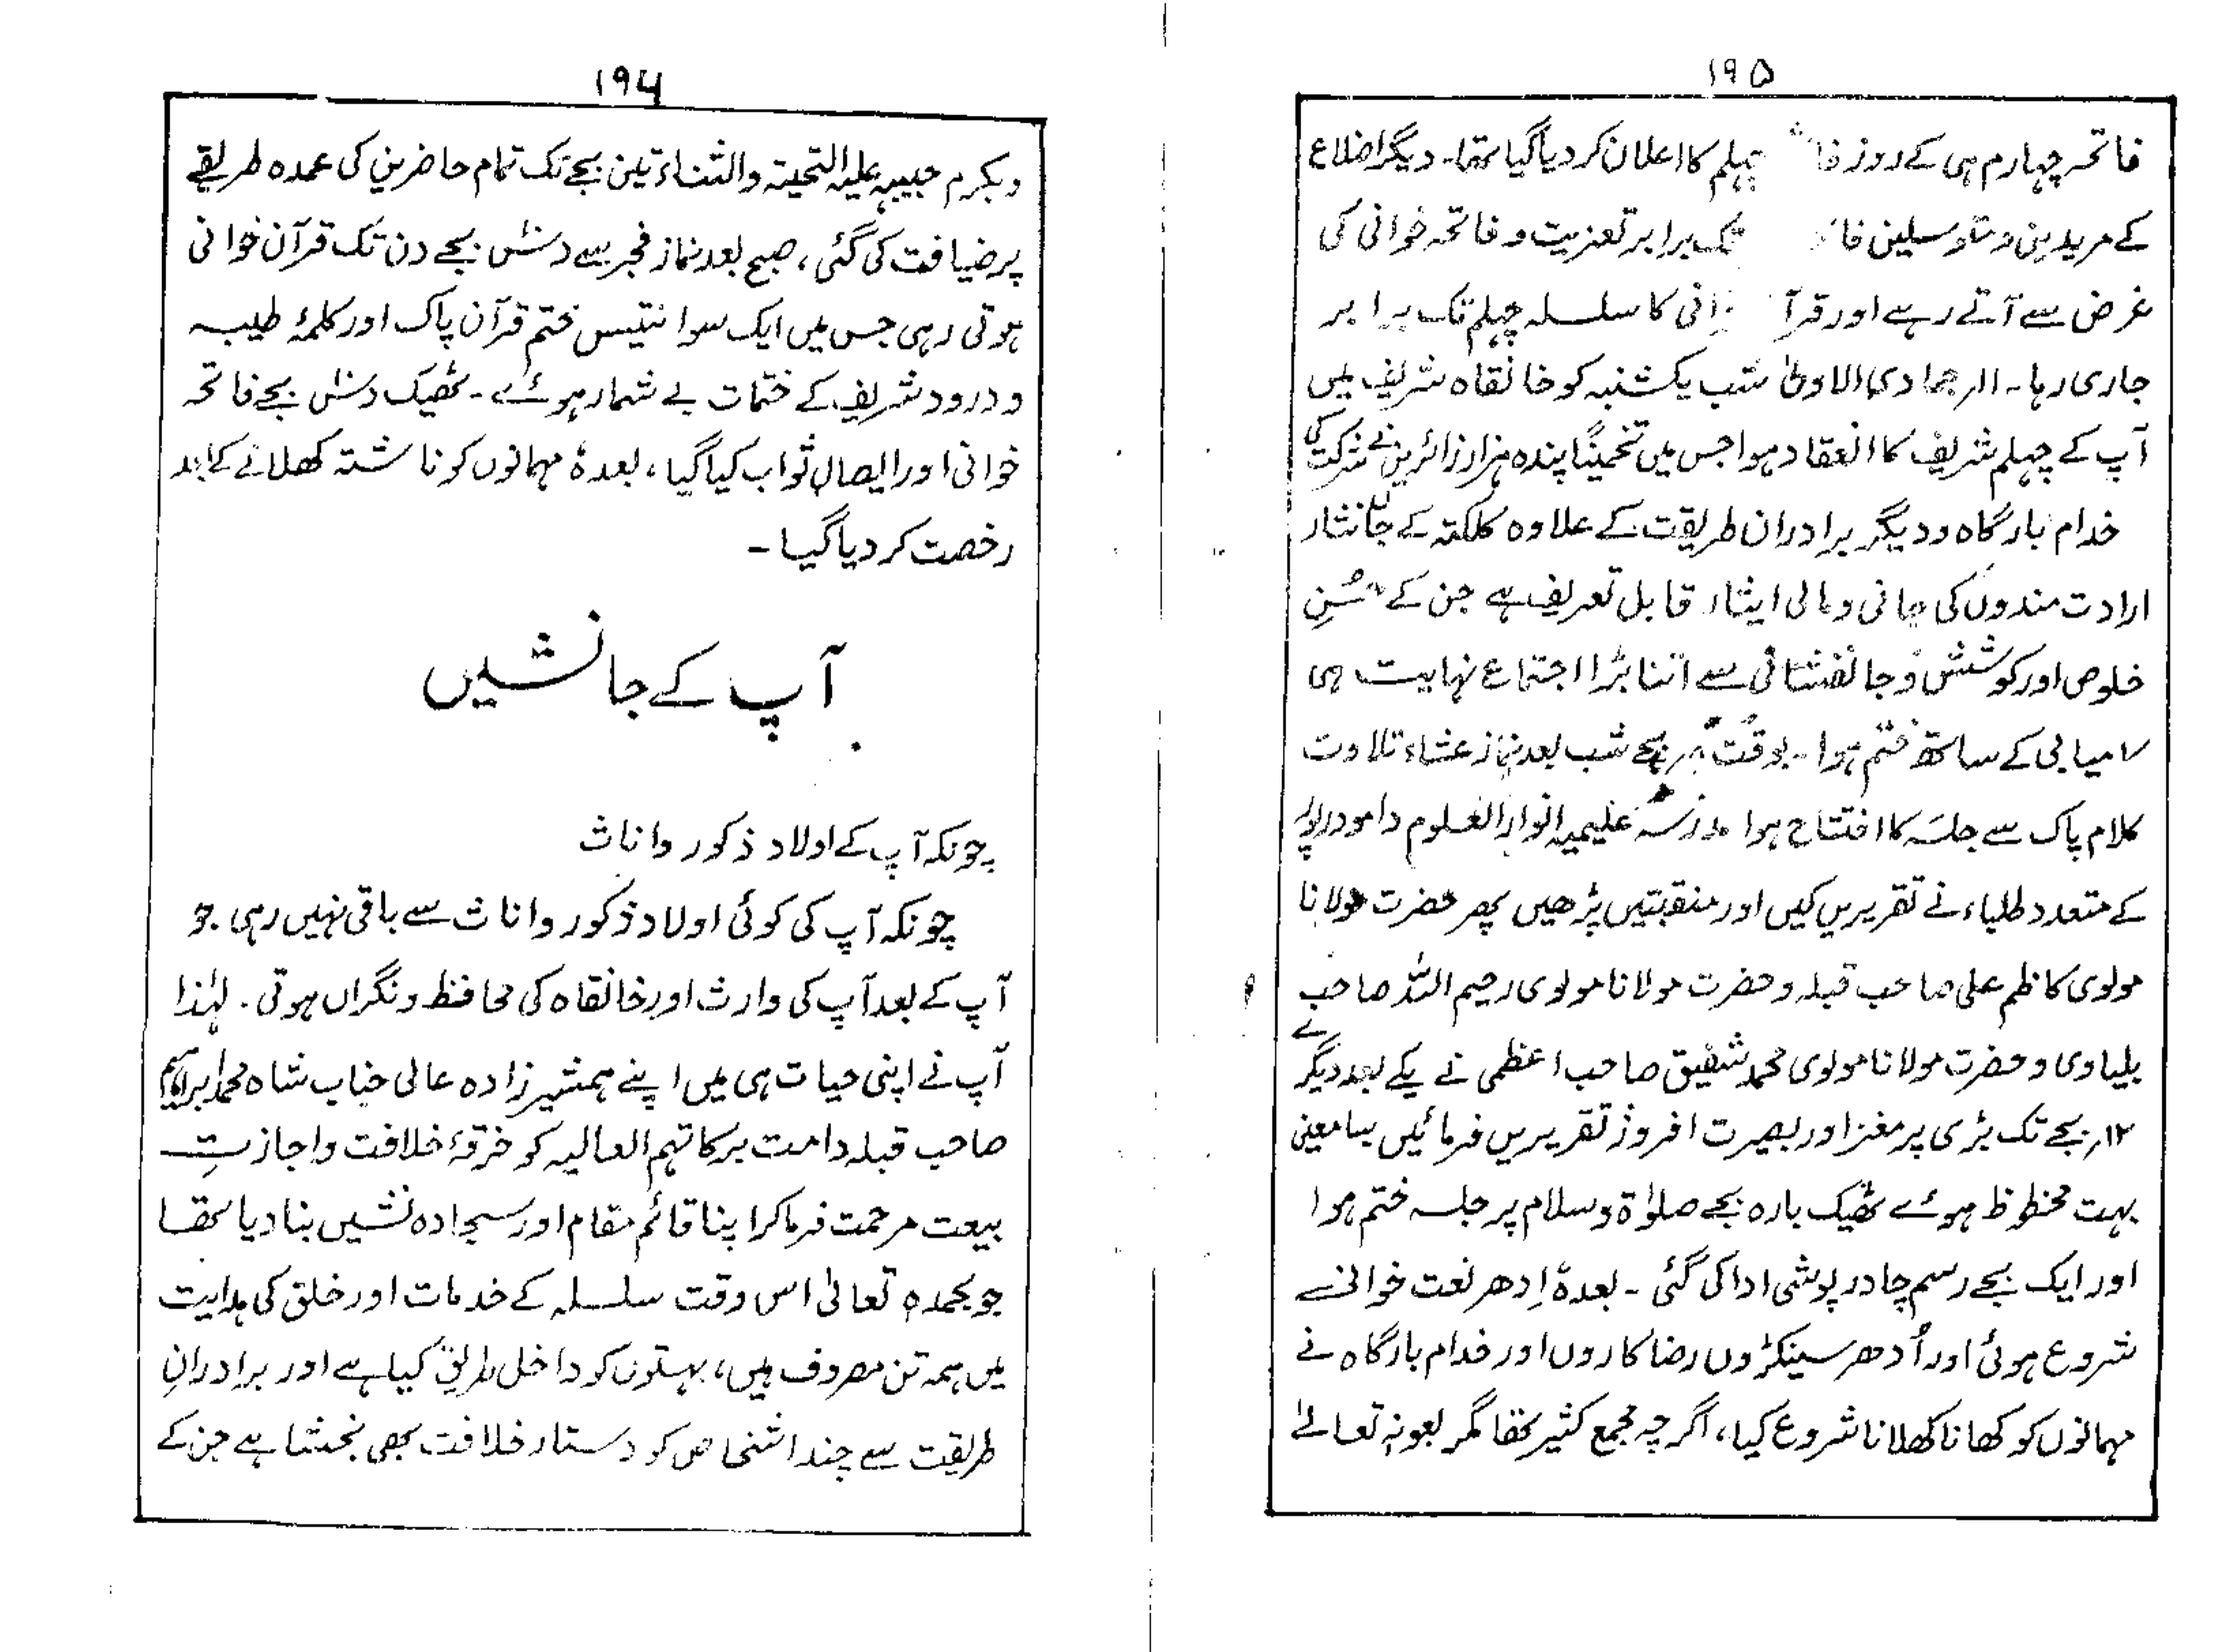 ۱۹۵
فاتحہ چہارم ہی کے روز چہلم کا اعلان کردیا گیا تھا۔ دیگر اضلاع
کے مریدین و متوسلین برابر تعزیت و فاتحہ خوانی کی
غرض سے آتے رہے اور کا سلسلہ چہلم تک برابر
جاری رہا۔ ۱۱؍ جمادی الاولیٰ شب یکشنبہ کو خانقاہ شریف میں
آپ کے چہلم شریف کا انعقاد ہوا جس میں تخمیناً پندہ ہزار زائرین نے شرکت کی
خدام بارگاہ و دیگر برادران طریقت کے علاوہ کلکتہ کے جانثار
ارادت مندوں کی جانی و مالی ایثار قابل تعریف ہے جن کے حُسنِ
خلوص اور کوشش و جانفشانی سے اتنا بڑا اجتماع نہایت ہی
کامیابی کے ساتھ ختم ہوا۔ بوقت بجے شب بعد نماز عشاء تلاوت
کلام پاک سے جلسہ کا افتتاح ہوا مدرسہ علیمیہ انوار العلوم دامودرپور
کے متعدد طلباء نے تقریریں کیں اور منقبتیں پڑھیں پھر حضرت مولانا
مولوی کاظم علی صاحب قبلہ و حضرت مولانا مولوی رحیم اللہ صاحب
بلیاوی و حضرت مولانا مولوی محمد شفیق صاحب اعظمی نے یکے بعد دیگرے
۱۲؍ بجے تک بڑی پر مغز اور بصیرت افروز تقریریں فرمائیں سامعین
بہت محظوظ ہوئے ٹھیک بارہ بجے صلوٰۃ و سلام پر جلسہ ختم ہوا
اور ایک بجے رسم چادر پوشی ادا کی گئی۔ بعدہٗ اِدھر نعت خوانی
شروع ہوئی اور اُدھر سینکڑوں رضاکاروں اور خدام بارگاہ نے
مہمانوں کو کھانا کھلانا شروع کیا، اگرچہ مجمع کثیر تھا مگر بعونہٖ تعالےٰ
۱۹۶
وبکرم حبیبہٖ علیہ التحیتہ والثناء تین بجے تک تمام حاضرین کی عمدہ طریقے
پر ضیافت کی گئی، صبح بعد نماز فجر سے دس بجے دن تک قرآن خوانی
ہوتی رہی جس میں ایک سو انتیس ختم قرآن پاک اور کلمۂ طیبہ
و درود شریف کے ختمات بے شمار ہوئے۔ ٹھیک دس بجے فاتحہ
خوانی اور ایصال ثواب کیا گیا، بعدہٗ مہمانوں کو ناشتہ کھلانے کے بعد
رخصت کر دیا گیا۔
آپ کے جانشیں
چونکہ آپ کے اولاد ذکور و اناث
چونکہ آپ کی کوئی اولاد ذکور و اناث سے باقی نہیں رہی جو
آپ کے بعد آپ کی وارث اور خانقاہ کی محافظ و نگراں ہوتی۔ لہٰذا
آپ نے اپنی حیات ہی میں اپنے ہمشیر زادہ عالی جناب شاہ محمد ابراہیم
صاحب قبلہ دامت برکاتہم العالیہ کو خرقۂ خلافت و اجازتِ
بیعت مرحمت فرما کر اپنا قائم مقام اور سجادہ نشیں بنا دیا تھا
جو بحمدہ تعالیٰ اس وقت سلسلہ کے خدمات اور خلق کی ہدایت
میں ہمہ تن مصروف ہیں، بہتوں کو داخل طریق کیا ہے اور برادرانِ
طریقت سے چند اشخاص کو دستار خلافت بھی بخشا ہے جن کے